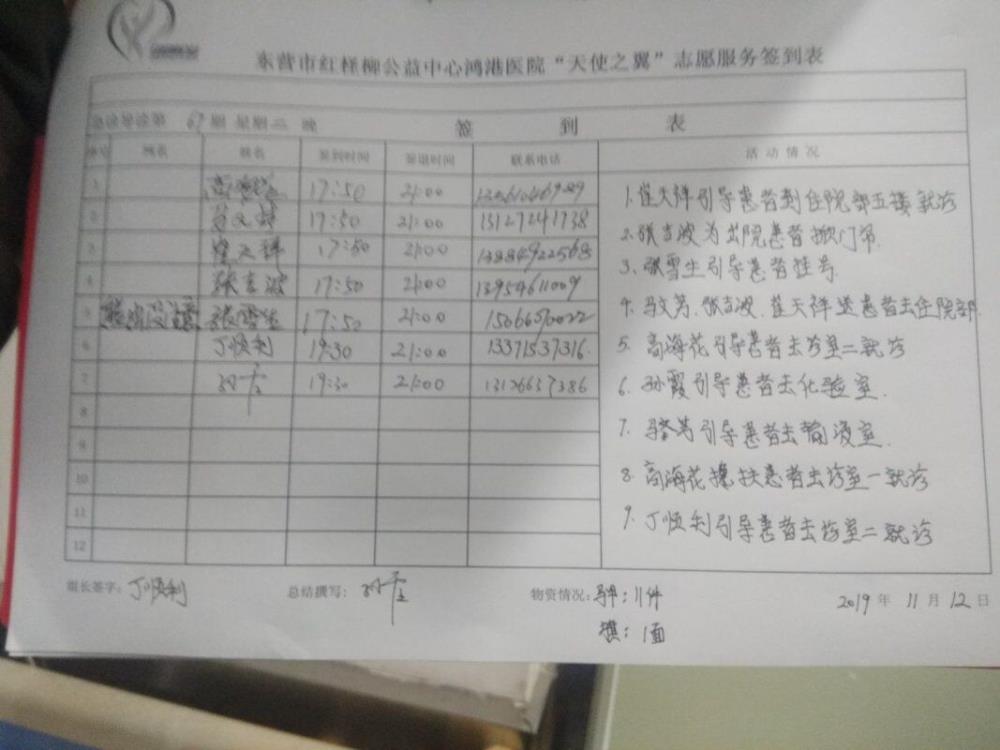 东营市红柽柳公益中心鸿港医院“天使之翼”志愿服务签到表
急诊导诊第 67 期 星期二 晚 签 到 表
序号 网名 姓名 签到时间 签退时间 联系电话 活动情况
1 高海花 17:50 21:00
2 17:50 21:00 13127241738
3 崔天祥 17:50 21:00 13884922568
4 张吉波 17:50 21:00 13954611009
5 张雪生 17:50 21:00 15066090022
6 丁顺利 19:30 21:00 13371537316
7 孙霞 19:30 21:00 13126637386
8
9
10
11
12
1.崔天祥引导患者到住院部五楼就诊
2.张吉波为出院患者掀门帘.
3.张雪生引导患者挂号
4.马文芳.张吉波.崔天祥送患者去住院部.
5.高海花引导患者去诊室二就诊
6.孙霞引导患者去化验室.
7.引导患者去输液室.
8.高海花搀扶患者去诊室一就诊
9.丁顺利引导患者去诊室二就诊
组长签字: 丁顺利 总结撰写: 孙霞 物资情况: 11件 2019 年 11 月 12 日
旗: 1面